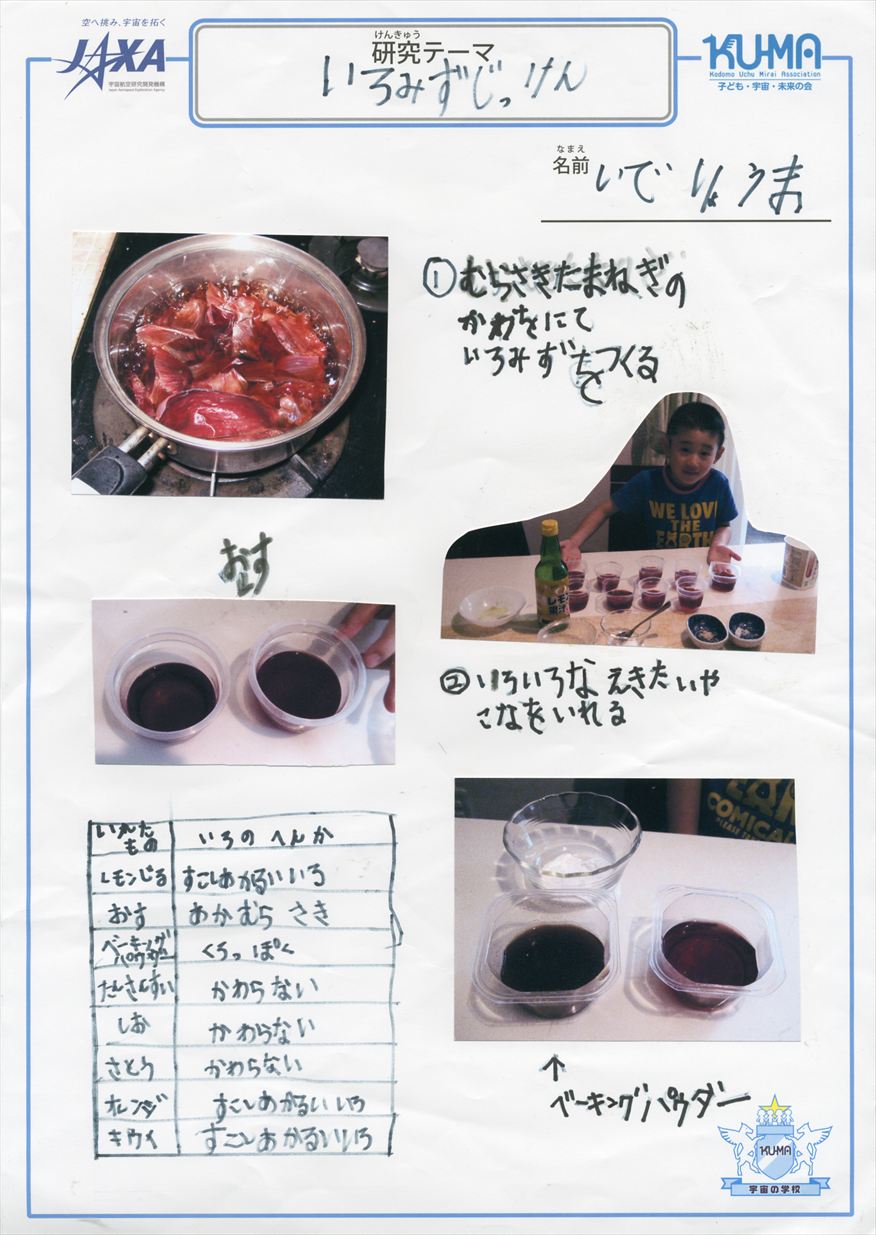 空へ挑み、宇宙を拓く
JAXA
宇宙航空研究開発機構
Japan Aerospace Exploration Agency
けんきゅう
研究テーマ
いろみずじっけん
KU-MA
Kodomo Uchu Mirai Association
子ども・宇宙・未来の会
なまえ
名前 いで りょうま
① むらさきたまねぎの
かわをにて
いろみずをつくる
WE LOVE
THE
EARTH
レモン
果汁
おす
② いろいろな えきたいや
こなをいれる
いれた
もの
いろの へんか
レモンじる すこしあかるいいろ
おす あかむらさき
ベーキング
パウダー
くろっぽく
たんさんすい かわらない
しお かわらない
さとう かわらない
オレンジ すこしあかるいいろ
キウイ すこしあかるいいろ
COMICAL
↑
ベーキングパウダー
KU-MA
宇宙の学校